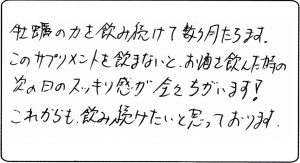 牡蠣の力を飲み続けて数ヶ月たちます。
このサプリメントを飲まないと、お酒を飲んだ時の
次の日のスッキリ感が全々ちがいます!
これからも、飲み続けたいと思っております。